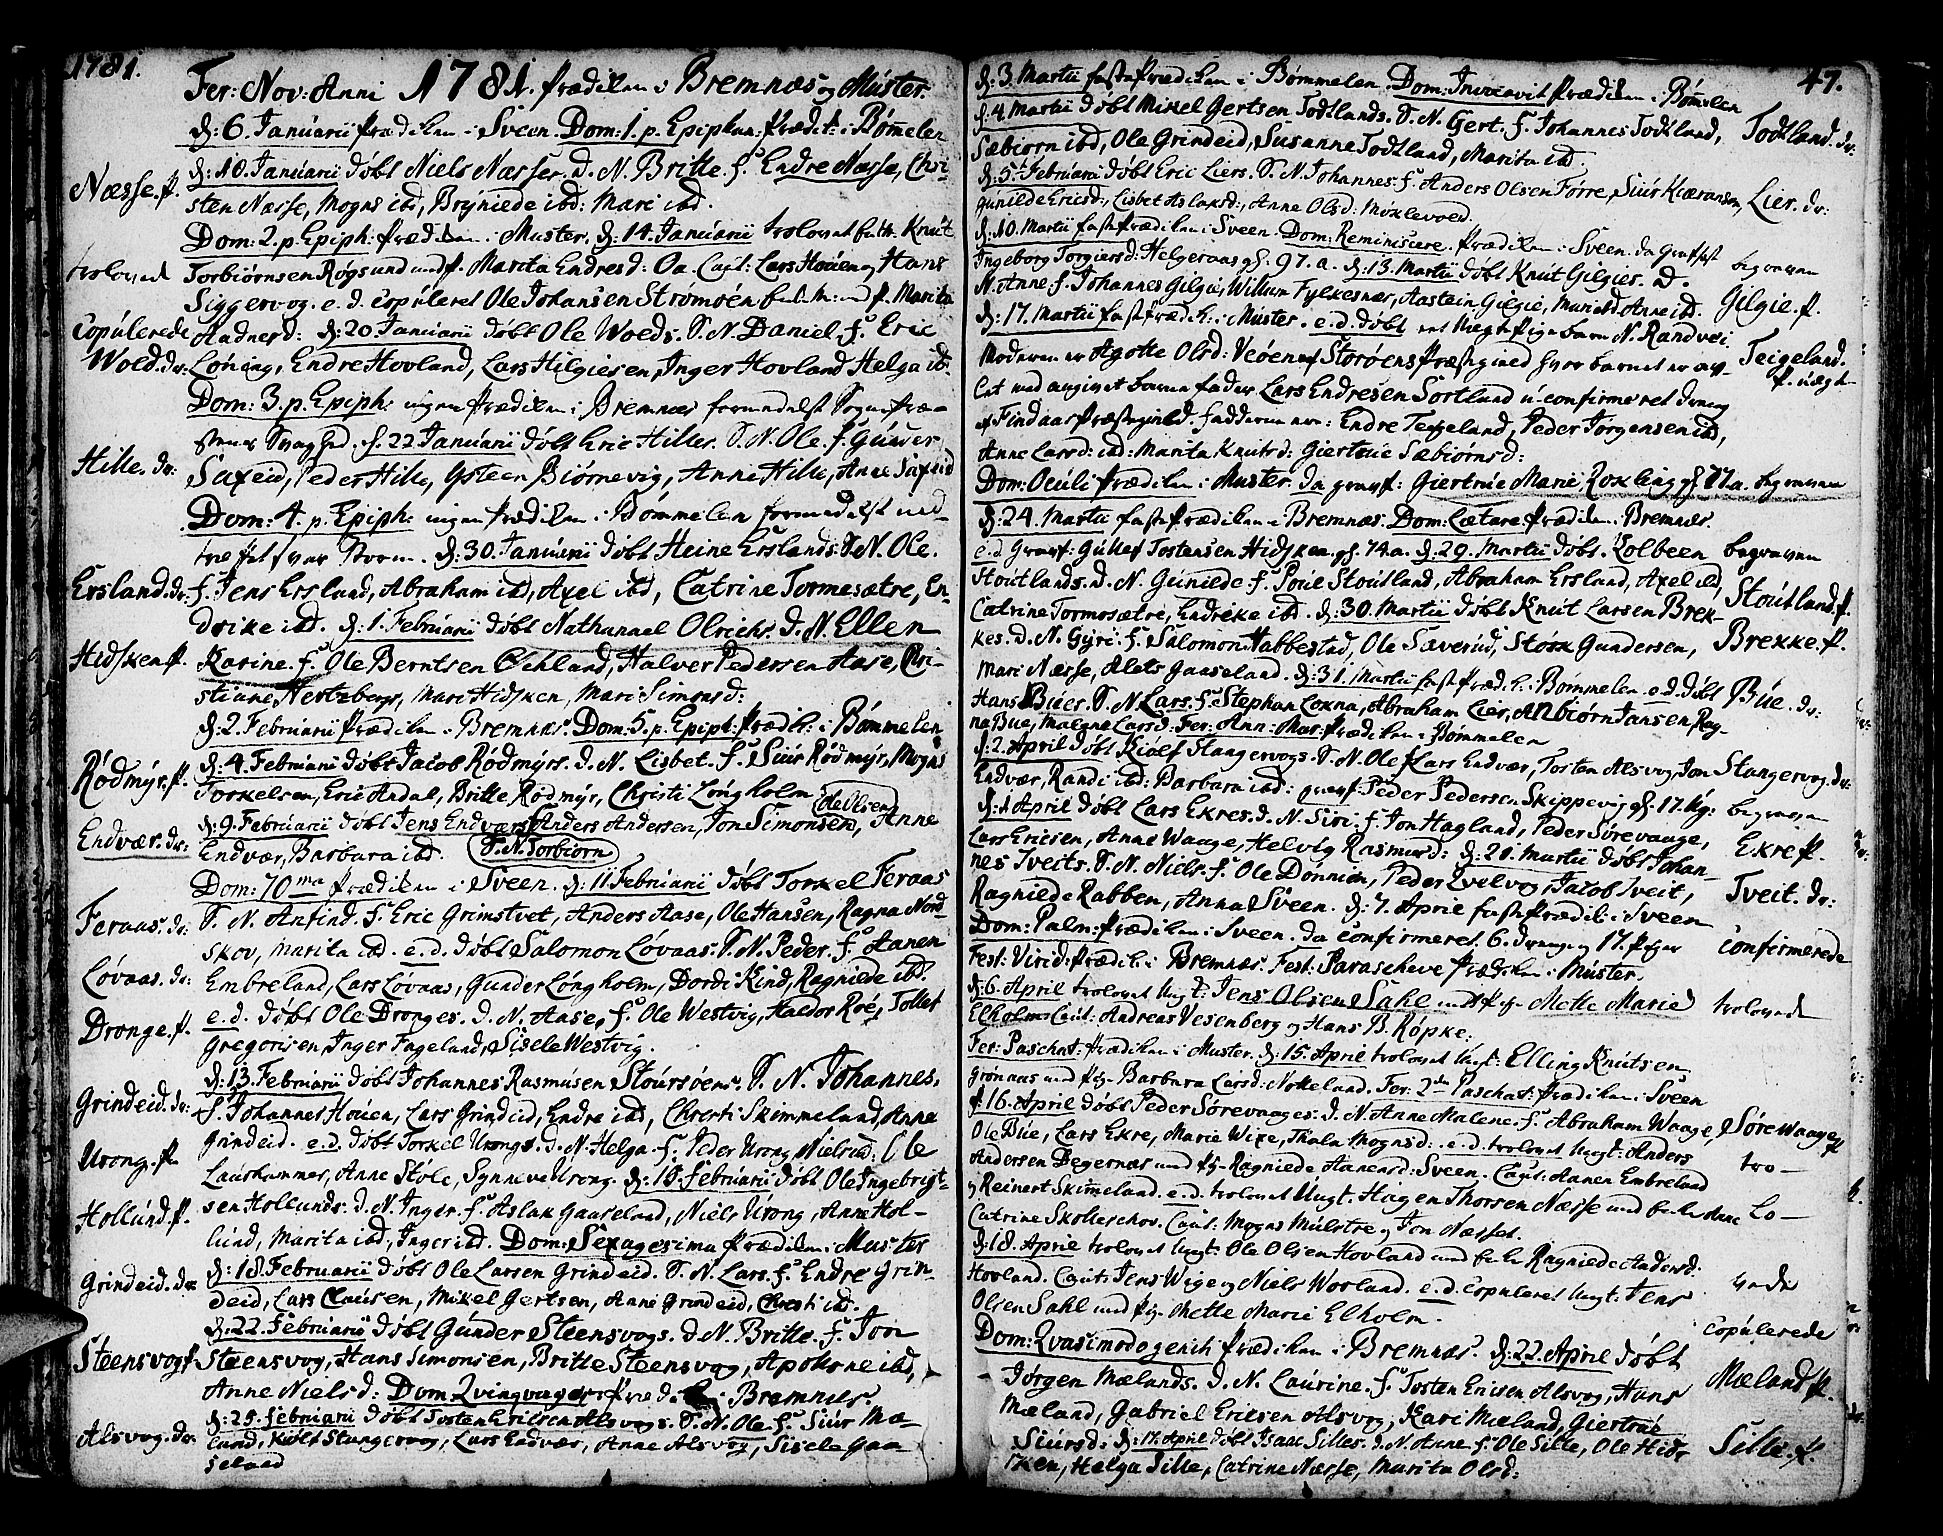 1781.
Fer: Nov: Anni 1781. Prædiken i Bremnæs og Müster.
d: 6. Januarii Prædiken i Sveen. Dom: 1. p. Epiphan: Prædik: i Bømmelen
d: 10. Januarii døbt Niels Næsses. D. N. Britte. F: Endre Næsse, Chri-
Næsse. P.
sten Næsse, Mogns ibd, Bryniede ibd: Mari ibd.
Dom: 2. p. Epiph: Prædiken i Muster. d: 14. Januarii trolovet Knut
trolovede
Torbiørnsen Røgsund med P. Marita Endresd: Ca. Caut: Lars Houen og Hans
Siggervog. e. d. Copuleret Ole Johansen Strømøen med P. Marita
Copulerede
Aadnesd: d: 20. Januarii døbt Ole Wolds. S. N. Daniel. F: Eric
Wold. dr:
Løning, Endre Hovland, Lars Hilgiesen, Inger Hovland Helga ibd.
Dom: 3. p. Epiph: ingen Prædiken i Bremnæs formedelst Sognepræ-
stens Svaghed. d: 22 Januarii døbt Eric Hilles. S. N. Ole. F. Gunder
Hille. dr:
Saxeid, Peder Hille, Ysteen Biørnevig, Anne Hille, Anne Saxeid
Dom: 4. p. Epiph: ingen Prædiken i Bømmelen formedelst ind-
treffet svar Storm. d: 30. Januarii døbt Heine Erslands. S. N. Ole.
Ersland. dr:
F. Jens Ersland, Abraham ibd, Axel ibd, Catrine Tormesætre, En-
drike ibd. d: 1. Februarii døbt Nathanael Olrichs. D. N. Ellen
Hidsken. P.
Karine. F: Ole Berntsen Øchland, Halver Pedersen Aase, Chri-
stiane Hertzberg, Mari Hidsken, Mari Simonsd:
d: 2. Februarii Prædiken i Bremnæs. Dom: 5. p. Epiph: Prædik: i Bømmelen
Rødmyr. P.
d: 4. Februarii døbt Jacob Rødmyrs. D. N. Lisbet. F: Siur Rødmyr, Mogns
Torkelsen, Eric Andal, Britte Rødmyr, Christi Longholm
Ole Olsen
Endvær. dr:
d: 9. Februarii døbt Jens Endværs Anders Andersen, Jon Simonsen, Anne
Endvær, Barbara ibd. S. N. Torbiørn
Dom: 70ma Prædiken i Sveen. d: 11 Februarii døbt Torkel Feraas
Feraas. dr:
S. N. Anfind. F: Eric Grimstvet, Anders Aase, Ole Hansen, Ragna Nord-
skov, Marita ibd. e. d. døbt Salomon Løvaas. S. N. Peder. F: Aanen
Løvaas. dr:
Embreland, Lars Løvaas, Gunder Longholm, Dordi Kind, Ragniede ibd.
Dronge. P.
e. d. døbt Ole Dronges. D. N. Aase. F: Ole Westvig, Haldor Roe, Tollef
Gregorisen, Inger Fageland, Sisele Westvig.
d: 13. Februarii døbt Johannes Rasmusen Stoursøens. S. N. Johannes.
Grindeid. dr:
F. Johannes Houen, Lars Grindeid, Endre ibd, Christi Skimmeland, Anne
Grindeid. e. d. døbt Torkel Urongs. D. N. Helga. F. Peder Urong, Ole
Urong. P.
Laurhammer, Anne Støle, Synneve Urong. d: 18. Februarii døbt Ole Ingebrigt-
sen Hollunds. D. N. Inger. F: Aslak Gaaseland, Niels Urong, Anne Hol-
Hollund. P.
lund, Marita ibd, Inger ibd. Dom: Sexagesima Prædiken i Muster
Grindeid. dr:
d: 18. Februarii døbt Ole Larsen Grindeid. S. N. Lars. F: Endre Grin-
deid, Lars Clausen, Mikel Gertsen, Anne Grindeid, Christi ibd.
d: 22. Februarii døbt Gunder Steensvogs. D. N. Britte. F: Jon
Steensvog. P.
Steensvog, Hans Simonsen, Britte Steensvog, Apolone ibd,
Anne Nielsd: Dom Qvinqvages: Præd: i Bremnæs.
Alsvog. dr:
d: 25. Februarii døbt Tosten Ericsen Alsvogs. S. N. Ole. F: Siur Mæ-
land, Kiolf Stangervog, Lars Endvær, Anne Alsvog, Sisele Gaa-
seland
47.
d: 3. Martii fastePrædiken i Bømmelen. Dom: Invocavit Prædiken i Bømelen
d. 4. Martii døbt Mikel Gertsen Todtlands. S. N. Gert. F. Johannes Todtland,
Todtland. dr:
Sæbiorn ibd, Ole Grindeid, Susanne Todtland, Marita ibd.
d: 5te Februarii døbt Eric Liers. S. N. Johannes. F: Anders Olsen Førre, Siur Klæranson,
Lier. dr:
Gunilde Ericsd:, Lisbet Aslaksd:, Anne Olsd: Møklevold.
d: 10. Martii fastPrædiken i Sveen. Dom: Reminiscere. Prædiken i Sveen. da Grafæst
Ingeborg Torgiersd: Helgeraas gl. 97. a. d: 13. Martii døbt Knut Gilgies. D.
begraven
N. Anne F. Johannes Gilgie, Willum Fylkesnæs, Aastein Gilgie, Anne ibd.
Gilgie. P.
d: 17. Martii fastPrædik: i Muster. e. d. døbt et Uægte Pigebarn N. Randvei
Moderen er Agotte Olsd: Veøen af Storøens Præstegield hvor barnet er av-
Teigeland.
P. uægt
let med angivet barne fader Lars Endresen Sortland u-confirmeret dreng
af Findaas Præstegield. Fadderne ere: Endre Teigeland, Peder Jørgensen ibd,
Anne Larsd: ibd: Marita Knutsd: Giertrue Sæbiørnsd:
Dom: Oculi Prædiken i Muster. da Graf: Giertrue Marie Roxling gl. 77. a.
begraven
d: 24. Martii fastePrædiken i Bremnæs. Dom: Lætare Prædiken i Bremnæs.
e. d Graf: Gullef Tostensen Hidsken. gl. 74 a. d: 29. Martii døbt. Kolbeen
begraven
Stoutlands. D. N. Gunilde F: Poul Stoutland, Abraham Ersland, Axel ibd,
Stoutland. P.
Catrine Tormosætre, Endreke ibd. d: 30. Martii døbt Knut Larsen Brek-
kes. D. N. Gyri. F. Salomon Habbestad, Ole Sæverud, Størk Gundersen,
Brekke. P.
Mari Næsse, Alets Gaaseland. d: 31. Martii fastPræd.k: i Bømmelen. e. d. døbt
Bue. dr:
Hans Bues. S. N. Lars. F: Stephan Lokna, Abraham Lier, Anbiørn Jansen Rag-
na Bue, Malene Larsd: Fer: Ann: Mar: Prædiken i Bømmelen
d: 2. April døbt Kiolf Stangervogs. S. N. Ole F Lars Endvær, Tosten Alsvog, Jon
Stangervog. dr:
Endvær, Randi ibd: Barbara ibd: Graf: Peder Pedersen Skippevig gl. 17. Ug:
begraven
d: 1 April døbt Lars Ekres. D. N. Siri. F: Jon Hagland, Peder Sørevaage,
Lars Ericsen, Anne Waage, Helvig Rasmusd: d: 21. Martii døbt Johan-
Ekre P.
nes Tveits. S. N. Niels. F. Ole Dønnien, Peder Qvelvog, Jacob Tveit,
Tveit. dr:
Ragniede Rabben, Anna Sveen. d: 7. April fastPrædik: i Sveen
Dom: Palm: Prædiken i Sveen. da Confirmeret 6. Drenge og 17. Piger
Confirmerede
Fest: Virid: Prædik: i Bremnæs. Fest: Parascheve Prædiken i Muster
d: 6. April trolovet Ungk: Jens Olsen Sahl med Pige Mette Marie
trolovede
Elholm Caut: Andreas Vesenberg og Hans B. Røpke.
Fer: Paschat: Prædiken i Muster. d: 15. April trolovet Ungk: Elling Knutsen
Grønaas med Pige Barbara Larsd: Nøkeland. Fer: 2da Paschat: Prædiken i Sveen
d. 16. April døbt Peder Sørevaages. D. N. Anne Malene. F: Abraham Waage,
Sørewaage P.
Ole Bue, Lars Ekre, Marie Wixe, Thala Mognsd: e. d. trolovet Ungk: Anders
Andersen Degernæs med Pig. Ragniede Aanensd: Sveen. Caut. Aanen Embreland
tro-
og Reinert Skimmeland. e. d. trolovet Ungk. Hagen Thorsen Næsse med Anne
lo-
Catrine Skolleschov. Caut: Mogns Milstre og Jon Næsse.
d: 18. April trolovet Ungk: Ole Olsen Hovland med Ragniede Aadersd:
Hovland. Caut: Jens Wige og Niels Worland. e. d. Copuleret Ungk: Jens
vede
Olsen Sahl med Pig. Mette Marie Elholm.
Copulerede
Dom: Qvasimodogeniti Prædiken i Bremnæs. d: 22. April døbt
Jørgen Mælands. D. N. Laurine. F: Tosten Ericsen Alsvog, Hans
Mæland P.
Mæland, Gabriel Ericsen Alsvog, Kari Mæland, Giertrue
Siursd: d: 17. April døbt Isaac Silles. D. N. Anne F: Ole Sille, Ole Hids-
Sille. P.
ken, Helga Sille, Catrine Næsse, Marita Olsd: